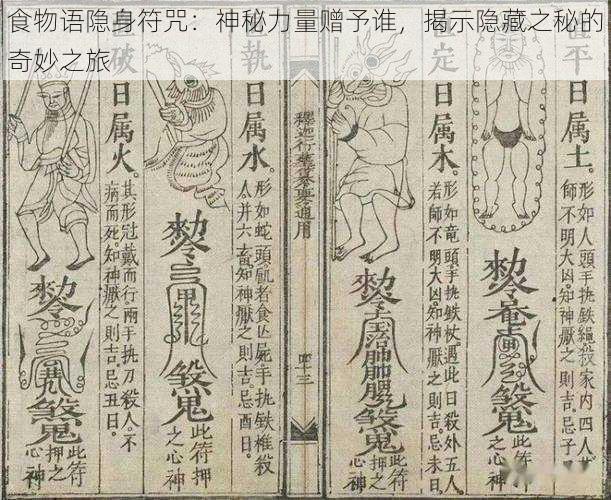 食物语隐身符咒：神秘力量赠予谁，揭示隐藏之秘的
奇妙之旅
平日属土。
形如人頭手挑鉄繩殺家内四人
師不明大凶。知神厭之則吉。忌子
勅令
煞鬼
此符押
之心神
定日属木。
形如竜頭手挑鉄杖過此日殺外五人
若師不明大凶。知神厭之則吉。忌未日.
勅令
煞鬼
此符押
之心神
通用
四十三
執日属水。
形如蛇頭者食屍。手挑鉄椎殺
人并六畜知神厭之則吉。忌酉日。
勅令三
煞鬼
此符押
之心神
破日属火。
其形冠戴而行兩手挑刀殺人。不
病而死。知神厭之則吉。忌丑日。
勅令三
煞鬼
此符
押之
心神